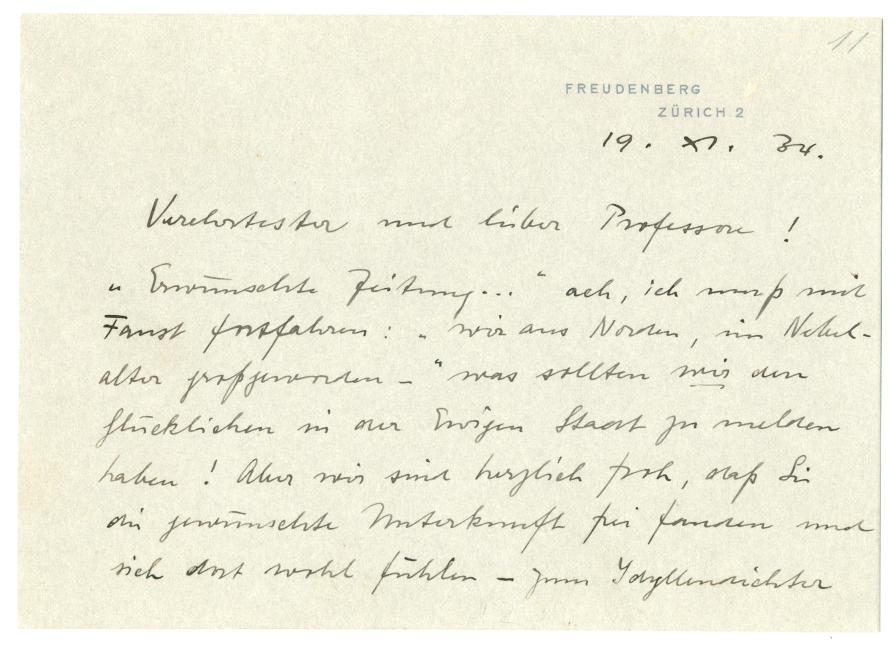 11
FREUDENBERG
ZÜRICH 2
19. XI. 34.
Verehrtester und lieber Professore!
„Erwünschte Zeitung..." ach, ich muß mit
Faust fortfahren: „wir aus Norden, im Nebel-
alter großgeworden –" was sollten wir den
Glücklichen in der Ewigen Stadt zu melden
haben! Aber wir sind herzlich froh, daß Sie
die gewünschte Unterkunft frei fanden und
sich dort wohl fühlen – zum Idyllendichter